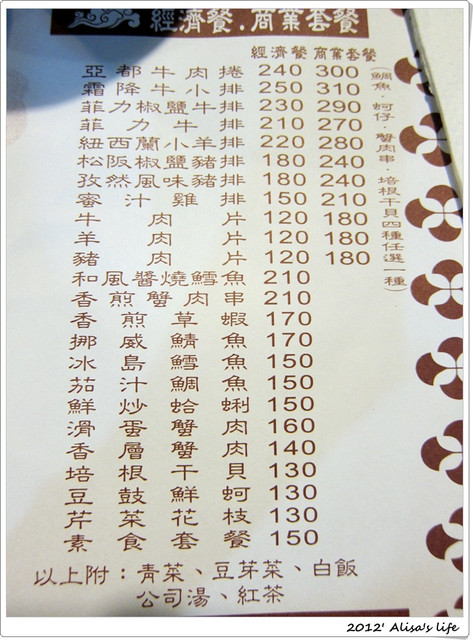 經濟餐．商業套餐
經濟餐 商業套餐
亞都牛肉捲 240 300
霜降牛小排 250 310
菲力椒鹽牛排 230 290
菲力牛排 210 270
紐西蘭小羊排 220 280
松阪椒鹽豬排 180 240
孜然風味豬排 180 240
蜜汁雞排 150 210
牛肉片 120 180
羊肉片 120 180
豬肉片 120 180
(鯛魚．蚵仔．蟹肉串．培根干貝四種任選一種)
和風醬燒鱈魚 210
香煎蟹肉串 210
香煎草蝦 170
挪威鯖魚 170
冰島鱈魚 150
茄汁鯛魚 150
鮮炒蛤蜊 150
滑蛋蟹肉 160
香層蟹肉 140
培根干貝 130
豆鼓鮮蚵 130
芹菜花枝 130
素食套餐 150
以上附：青菜、豆芽菜、白飯
公司湯、紅茶
2012' Alisa's life